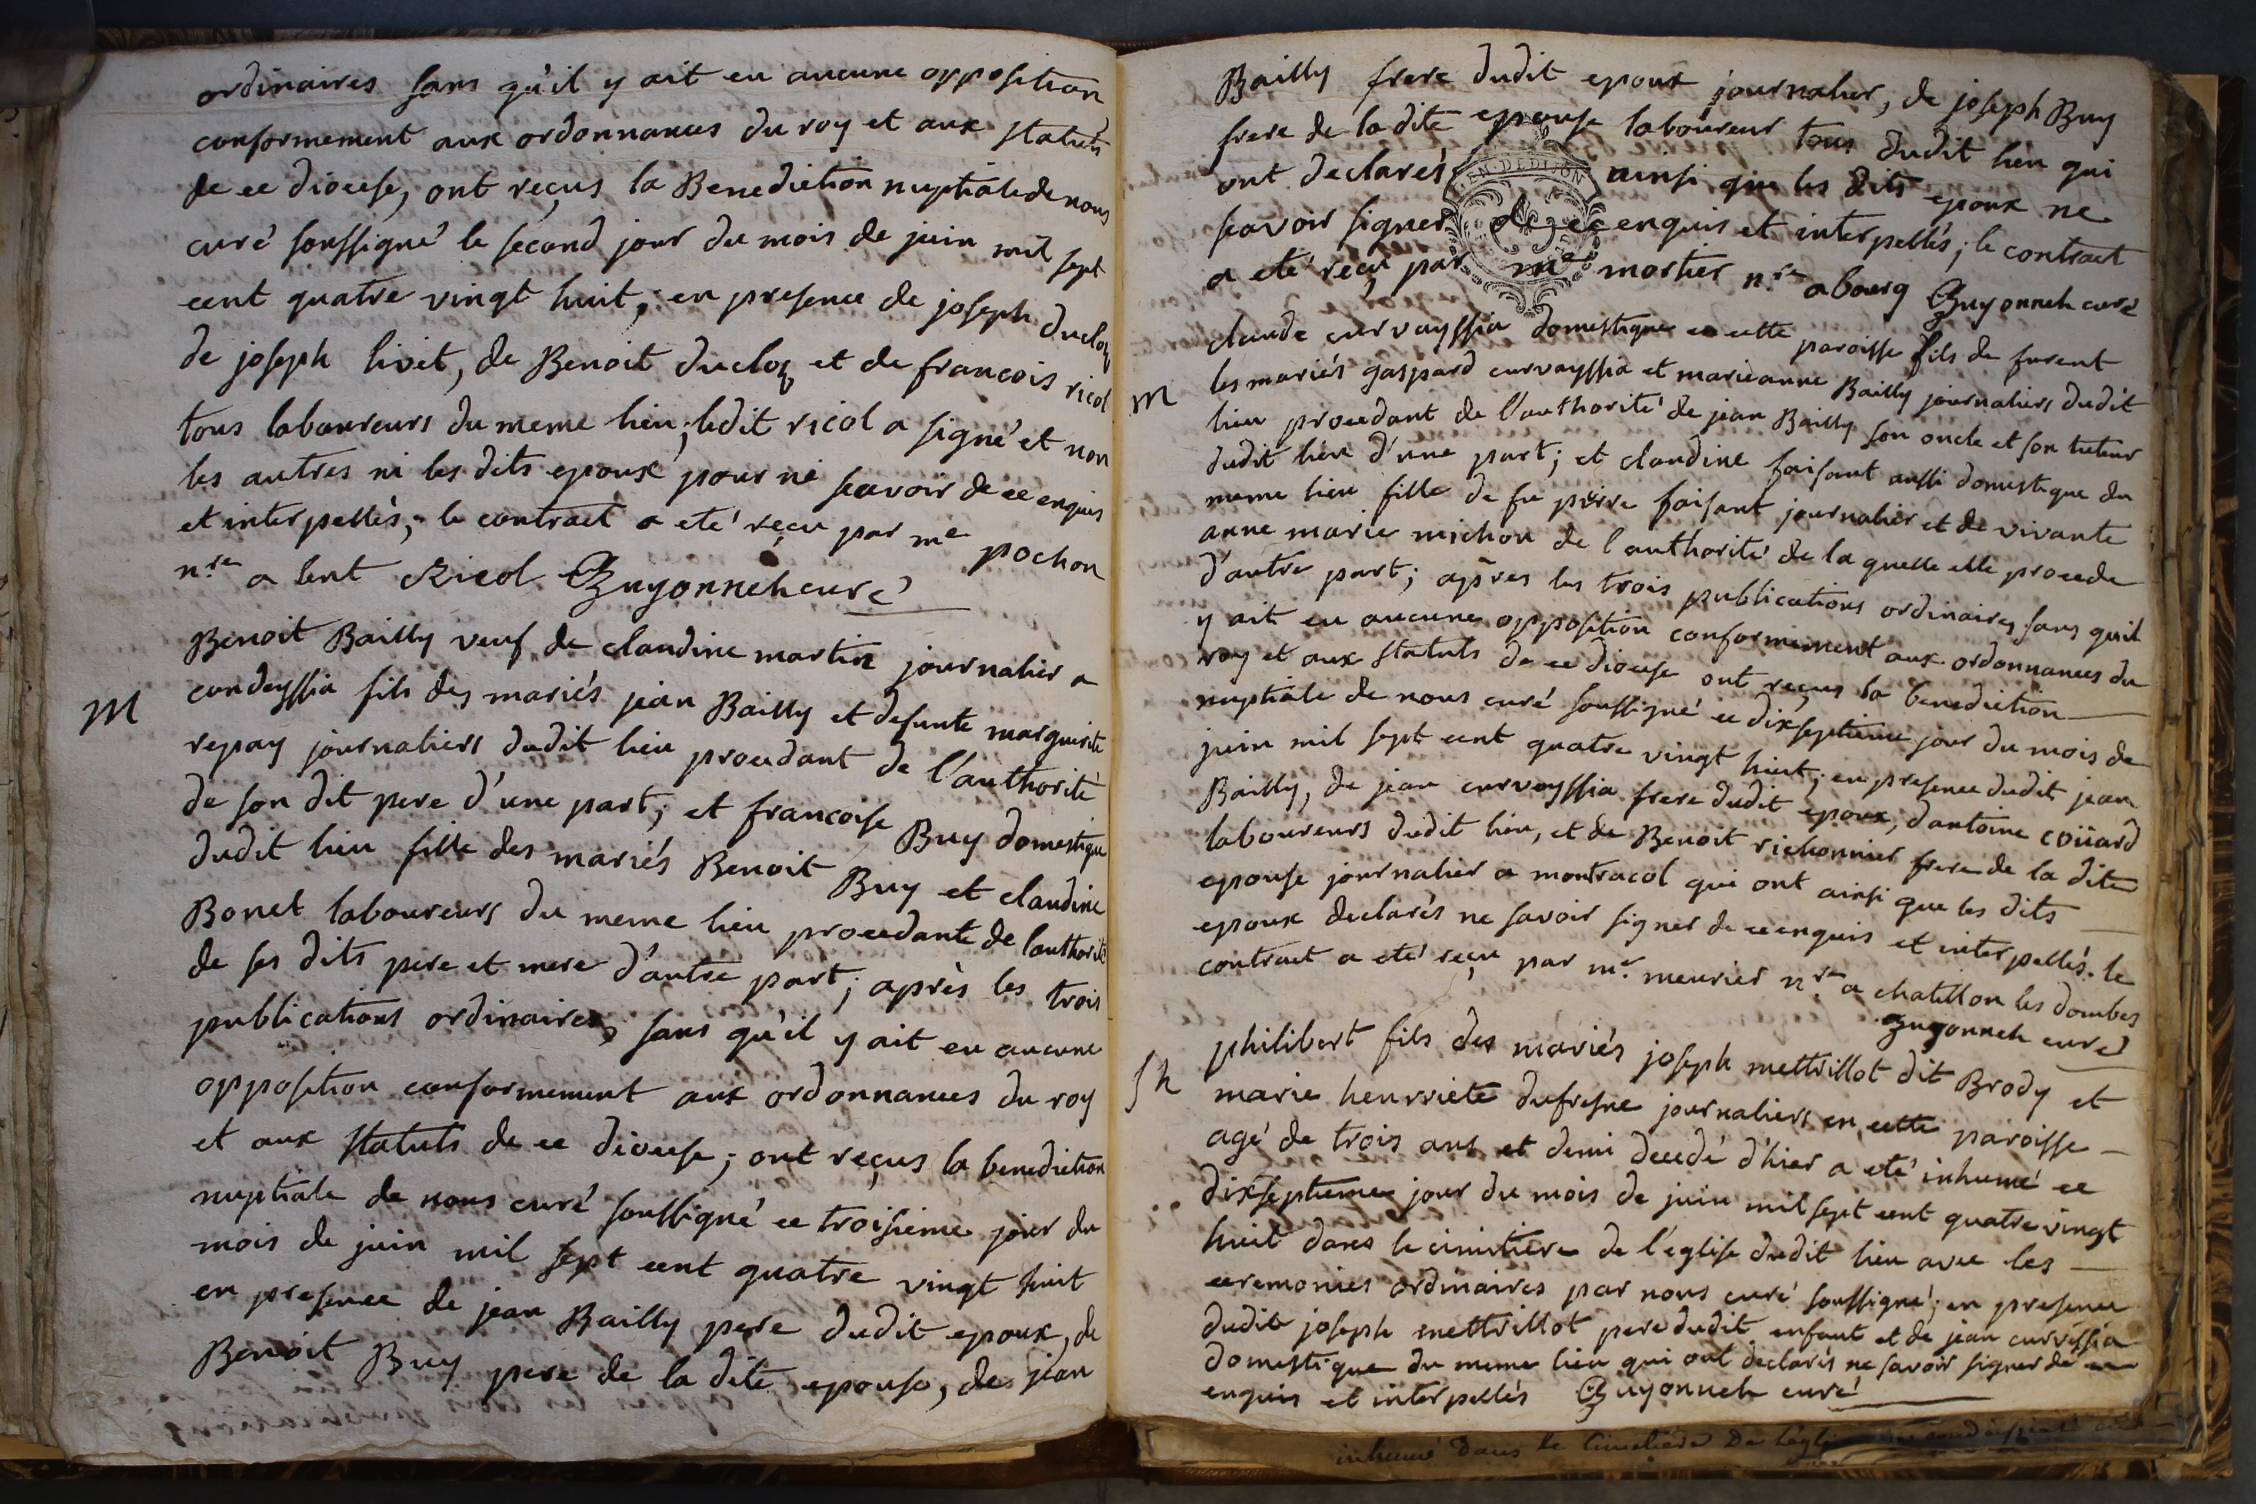 ordinaires sans qu'il y ait eu aucune opposition
conformement aux ordonnances du roy et aux statuts
de ce diocese, ont reçus la Benediction nuptiale de nous
curé soussigné le second jour du mois de juin mil sept
cent quatre vingt huit, en presence de joseph ducloz
de joseph livet, de Benoit ducloz et de francois ricol
tous laboureurs du meme lieu; ledit ricol a signé et non
les autres ni les dits epoux pour ne scavoir de ce enquis
et interpellés; le contract a eté reçu par me pochon
n.re a lent Ricol Guyonneh curé
Benoit Bailly veuf de claudine martin journalier a
M
condeyssia fils des mariés jean Bailly et defunte marguerite
repay journaliers dudit lieu procedant de l'authorité
de son dit pere d'une part; et francoise Buy domestique
dudit lieu fille des mariés Benoit Buy et claudine
Bonet laboureurs du meme lieu procedante de lauthorité
de ses dits pere et mere d'autre part; après les trois
publications ordinaires, sans qu'il y ait eu aucune
opposition conformement aux ordonnances du roy
et aux statuts de ce diocese; ont reçus la benediction
nuptiale de nous curé soussigné ce troisieme jour du
mois de juin mil sept cent quatre vingt huit
en presence de jean Bailly pere dudit epoux, de
Benoit Buy pere de la dite epouse, de jean
Bailly frere dudit epoux journalier, de joseph Buy
frere de la dite epouse laboureur tous dudit lieu qui
ont declarés ainsi que les dits epoux ne
scavoir signer de ce enquis et interpellés; le contract
a eté reçu par me mortier n.re a bourg Guyonneh curé
claude curvayssia domestique en cette paroisse fils de furent
M
les mariés gaspard curvayssia et marieanne Bailly journaliers dudit
lieu procedant de l'authorité de jean Bailly son oncle et son tuteur
dudit lieu d'une part; et claudine faisant aussi domestique du
meme lieu fille de fu pierre faisant journalier et de vivante
anne marie michon de l'authorité de la quelle elle procede
d'autre part; apres les trois publications ordinaires sans quil
y ait eu aucune opposition conformement aux ordonnances du
roy et aux statuts de ce diocese ont reçus la benediction
nuptiale de nous curé soussigné ce dixseptieme jour du mois de
juin mil sept cent quatre vingt huit; en presence dudit jean
Bailly, de jean curvayssia frere dudit epoux, dantoine coüard
laboureurs dudit lieu, et de Benoit richonnier frere de la dite
epouse journalier a montracol qui ont ainsi que les dits
epoux declarés ne savoir signer de ce enquis et interpellés. le
contract a eté reçu par me. meurier n.re a chatillon les dombes
Guyonneh curé
philibert fils des mariés joseph mettrillot dit Brody et
Sh
marie henrriete dufresne journaliers en cette paroisse
agé de trois ans et demi decedé d'hier a eté inhumé ce
dixseptieme jour du mois de juin mil sept cent quatre vingt
huit dans le cimitiere de l'eglise dudit lieu avec les
ceremonies ordinaires par nous curé soussigné; en presence
dudit joseph mettrillot pere dudit enfant et de jean curvissia
domestique du meme lieu qui ont declarés ne savoir signer de ce
enquis et interpellés Guyonneh curé
inhumé dans le Cimetiere De leglise